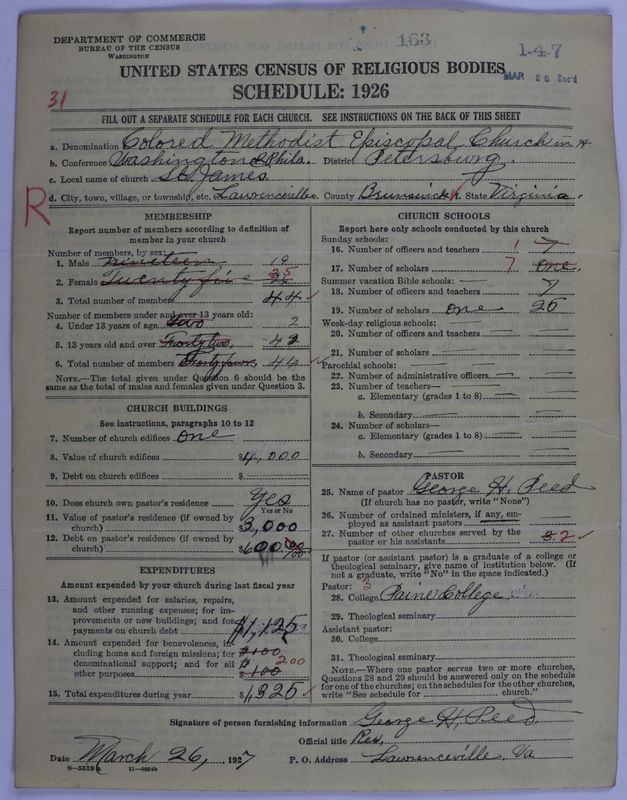 DEPARTMENT OF COMMERCE
BUREAU OF THE CENSUS
WASHINGTON
163
1-47
MAR 28 Rec'd
UNITED STATES CENSUS OF RELIGIOUS BODIES
SCHEDULE: 1926
31
FILL OUT A SEPARATE SCHEDULE FOR EACH CHURCH. SEE INSTRUCTIONS ON THE BACK OF THIS SHEET
a. Denomination Colored Methodist Episcopal Church in A
b. Conference Washington & Phila. District Petersburg.
c. Local name of church St. James
R
d. City, town, village, or township, etc. Lawrenceville County Brunswick State Virginia.
MEMBERSHIP
Report number of members according to definition of
member in your church
Number of members, by sex:
1. Male nineteen 19
2. Female Twenty five 25
3. Total number of members 44
Number of members under and over 13 years old:
4. Under 13 years of age Two 2
5. 13 years old and over Forty two 42
6. Total number of members Forty four 44
NOTE.—The total given under Question 6 should be
the same as the total of males and females given under Question 3.
CHURCH BUILDINGS
See instructions, paragraphs 10 to 12
7. Number of church edifices one
8. Value of church edifices $4,000
9. Debt on church edifices $
10. Does church own pastor's residence Yes
Yes or No
11. Value of pastor's residence (if owned by
church) $3,000
12. Debt on pastor's residence (if owned by
church) $600 00/100
EXPENDITURES
Amount expended by your church during last fiscal year
13. Amount expended for salaries, repairs,
and other running expenses; for im-
provements or new buildings; and for
payments on church debt $1,125
14. Amount expended for benevolences, in-
cluding home and foreign missions; for
denominational support; and for all
other purposes $100 $100 200
15. Total expenditures during year $1325
CHURCH SCHOOLS
Report here only schools conducted by this church
Sunday schools:
16. Number of officers and teachers 1 7
17. Number of scholars 7 One.
Summer vacation Bible schools:
18. Number of officers and teachers 7
19. Number of scholars one 25
Week-day religious schools:
20. Number of officers and teachers
21. Number of scholars
Parochial schools:
22. Number of administrative officers
23. Number of teachers—
a. Elementary (grades 1 to 8)
b. Secondary
24. Number of scholars—
a. Elementary (grades 1 to 8)
b. Secondary
PASTOR
25. Name of pastor George H. Reed
(If church has no pastor, write "None")
26. Number of ordained ministers, if any, em-
ployed as assistant pastors
27. Number of other churches served by the
pastor or his assistants 3 2
If pastor (or assistant pastor) is a graduate of a college or
theological seminary, give name of institution below. (If
not a graduate, write "No" in the space indicated.)
Pastor: 3
28. College Paine College
29. Theological seminary
Assistant pastor:
30. College
31. Theological seminary
NOTE.—Where one pastor serves two or more churches,
Questions 28 and 29 should be answered only on the schedule
for one of the churches; on the schedules for the other churches,
write "See schedule for church."
Signature of person furnishing information George H. Reed
Official title Rev.
Date March 26, 1927 P. O. Address Lawrenceville, Va
8—5518a 11—9564b